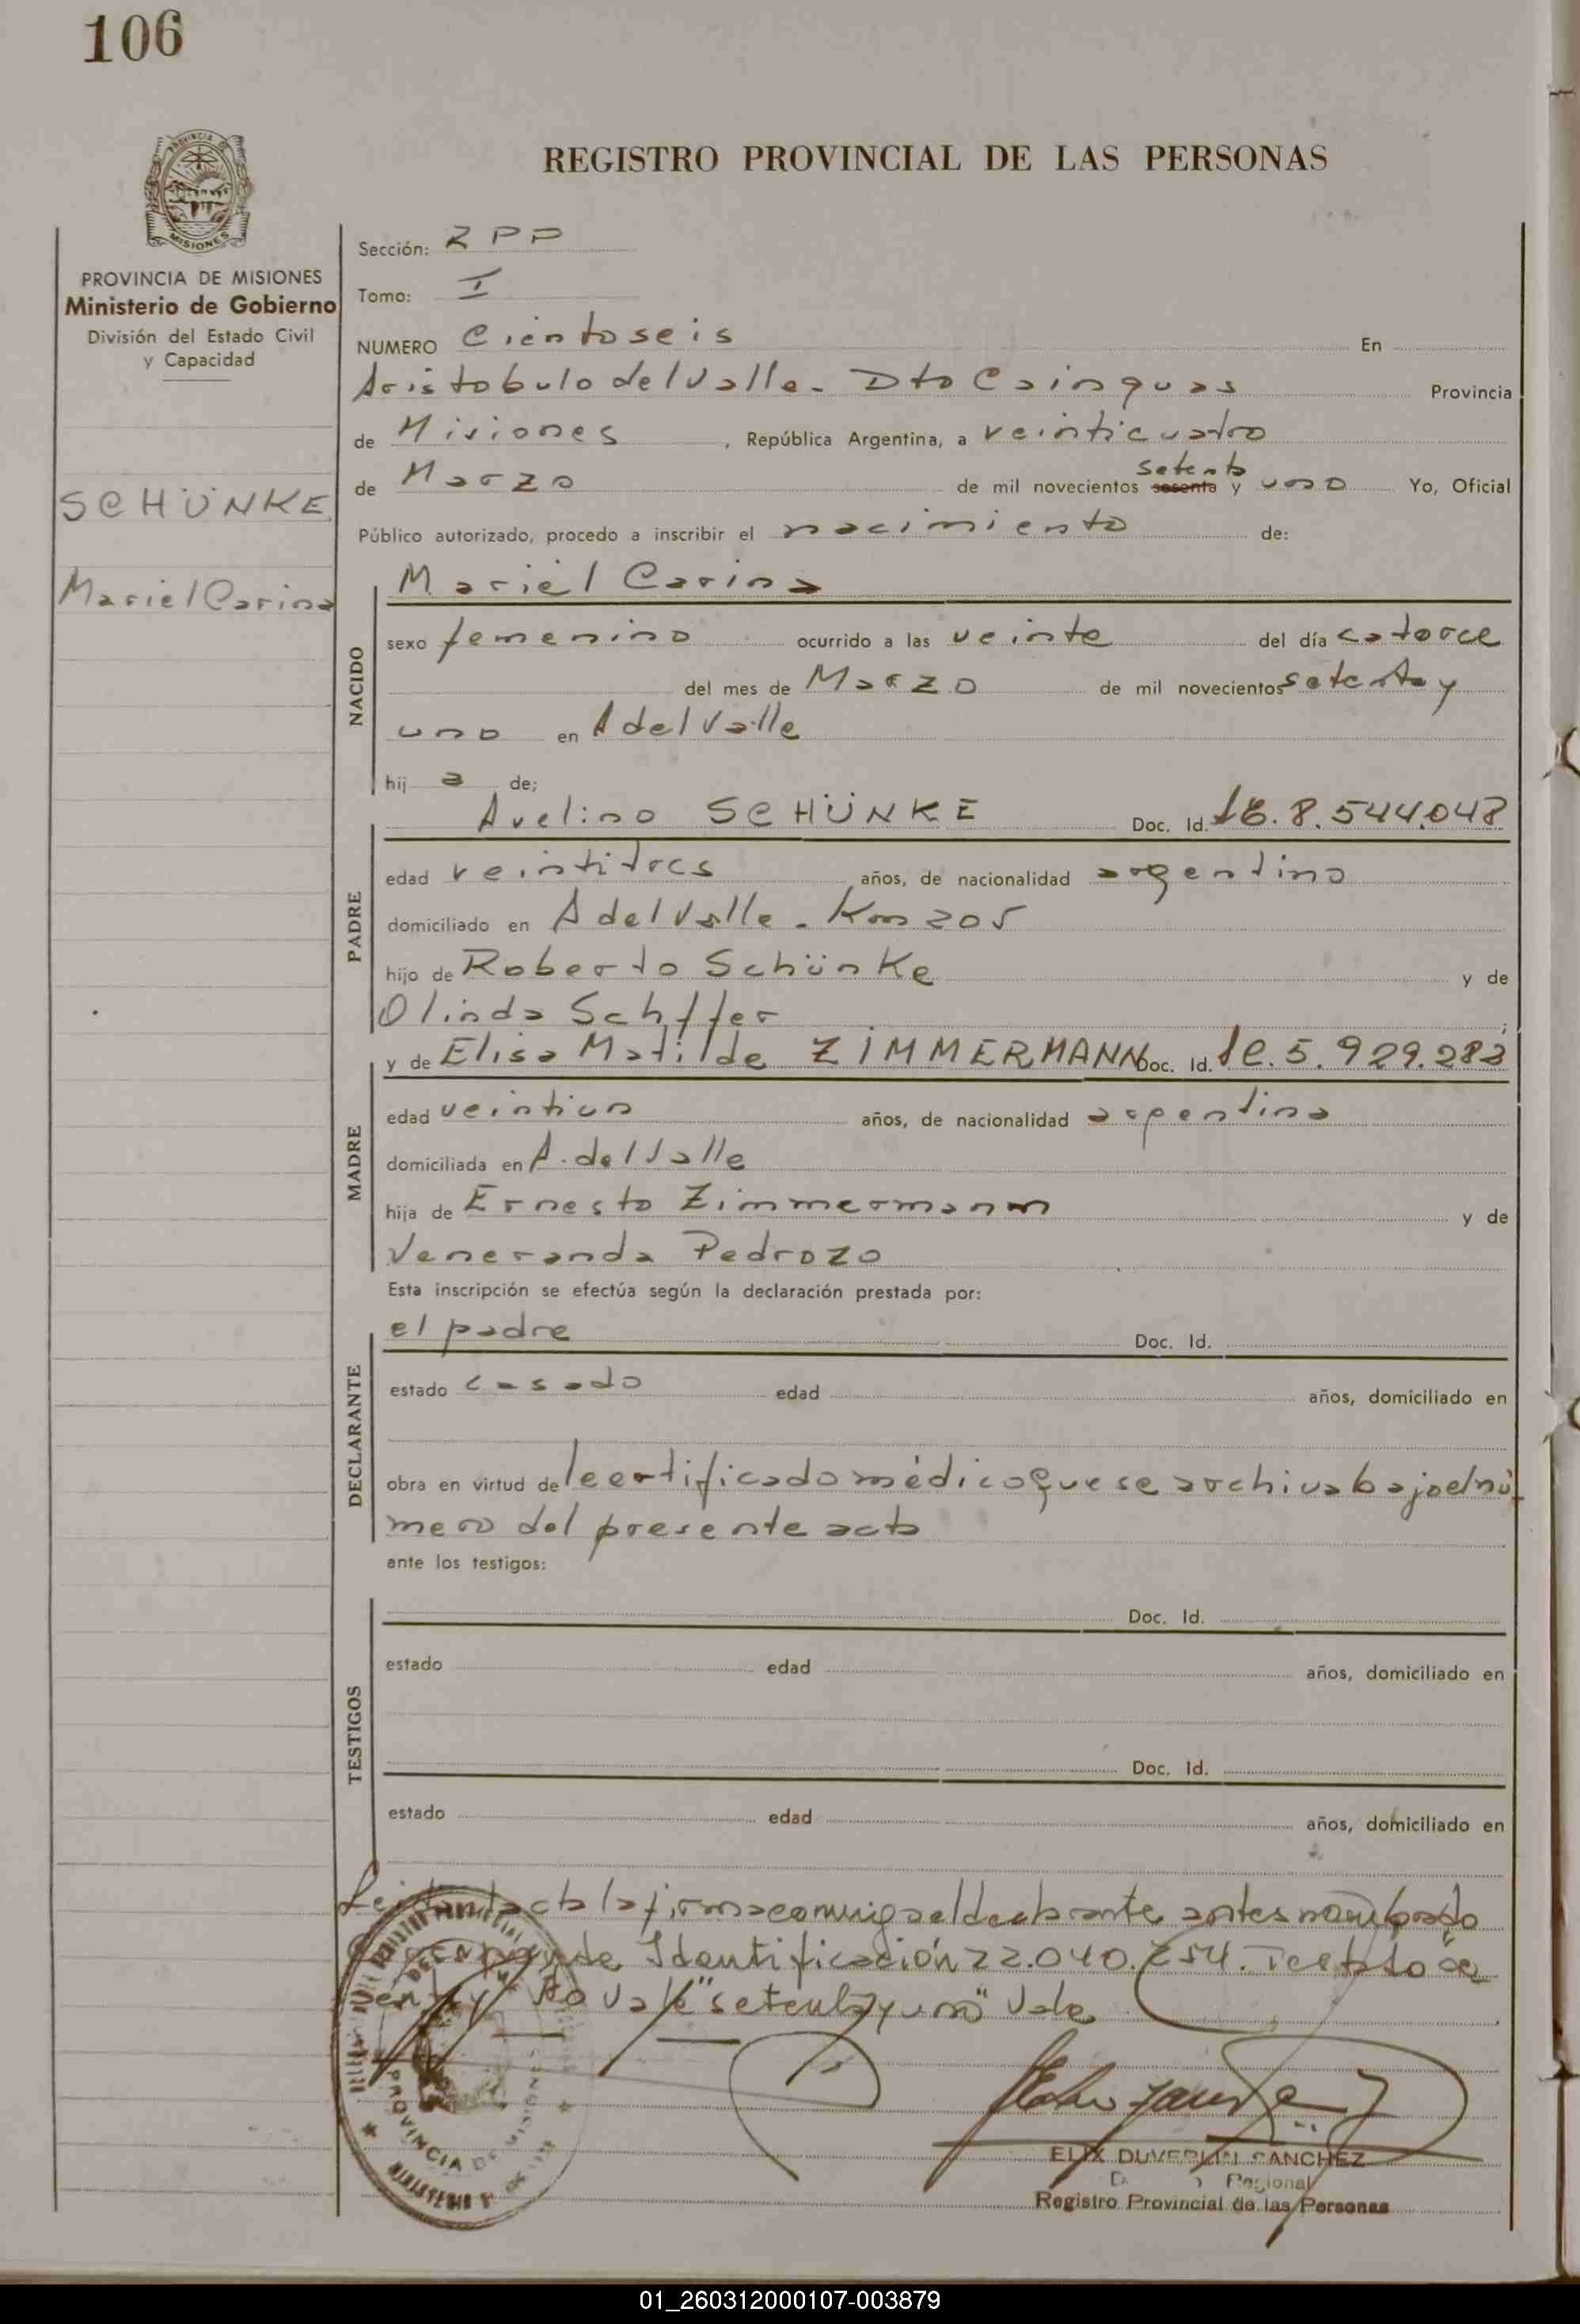 106
REGISTRO PROVINCIAL DE LAS PERSONAS
PROVINCIA DE MISIONES
Ministerio de Gobierno
División del Estado Civil
y Capacidad
SCHÜNKE
Mariel Carina
Sección: RPP
Tomo: I
NUMERO Ciento seis En
Aristobulo del Valle - Dto Cainguas Provincia
de Misiones, República Argentina, a veinticuatro
setenta
de Marzo de mil novecientos sesenta y uno Yo, Oficial
Público autorizado, procedo a inscribir el nacimiento de:
Mariel Carina
NACIDO
sexo femenino ocurrido a las veinte del día catorce
del mes de Marzo de mil novecientos setenta y
uno en A del Valle
hij a de;
Avelino SCHÜNKE Doc. Id. 8.544.048
PADRE
edad veintitres años, de nacionalidad argentino
domiciliado en A del Valle - Km 205
hijo de Roberto Schünke y de
Olinda Schffer
y de Elisa Matilde ZIMMERMANN Doc. Id. lc. 5.929.283
MADRE
edad veintiun años, de nacionalidad argentina
domiciliada en A. del Valle
hija de Ernesto Zimmermann y de
Veneranda Pedrozo
Esta inscripción se efectúa según la declaración prestada por:
el padre Doc. Id.
DECLARANTE
estado casado edad años, domiciliado en
obra en virtud del certificado médico que se archiva bajo el nú
mero del presente acta
ante los testigos:
Doc. Id.
TESTIGOS
estado edad años, domiciliado en
Doc. Id.
estado edad años, domiciliado en
Leida el acta la firma conmigo el declarante antes nombrado
de Identificación 22.040.254. Testado
No vale "setenta y uno" Vale
PROVINCIA DE MISIONES
ELIX SANCHEZ
Regional
Registro Provincial de las Personas
01_260312000107-003879